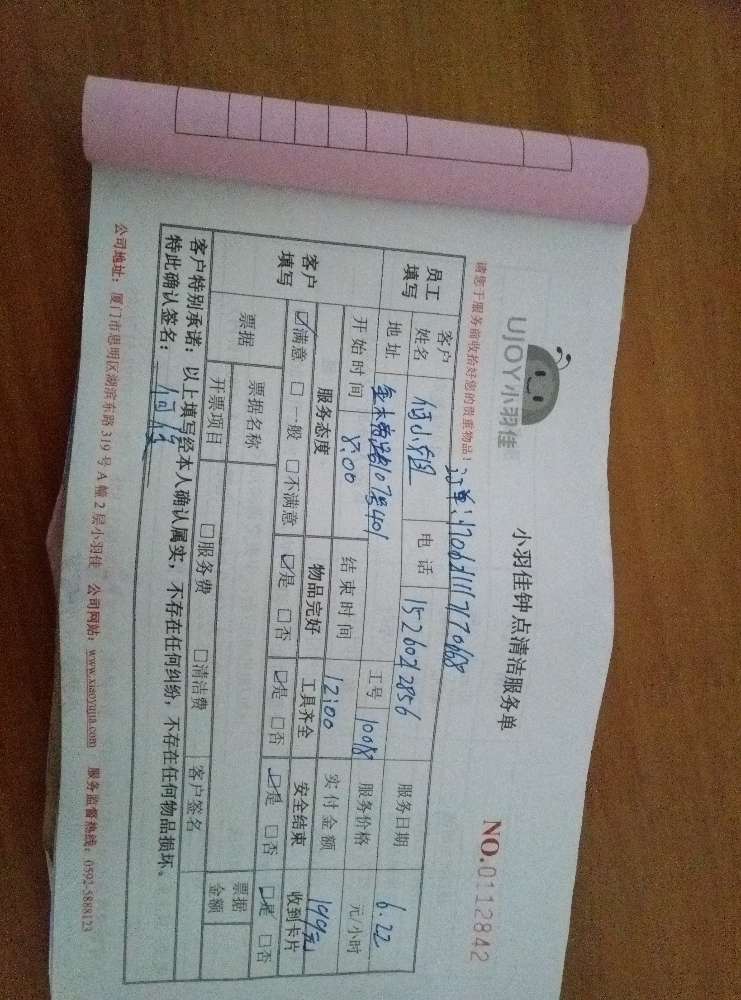 UJOY小羽佳
小羽佳钟点清洁服务单
NO.0112842
请您于服务前收拾好您的贵重物品！
员工填写
客户姓名
电话
15260212856
服务日期
6.22
地址
工号
1008
服务价格
元/小时
开始时间
8:00
结束时间
12:00
实付金额
199元
客户填写
服务态度
物品完好
工具齐全
安全结束
收到卡片
☑满意 □一般 □不满意
☑是 □否
☑是 □否
☑是 □否
☑是 □否
票据
票据名称
票据金额
开票项目
□服务费 □清洁费
客户签名
客户特别承诺：以上填写经本人确认属实，不存在任何纠纷，不存在任何物品损坏。
特此确认签名：
公司地址：厦门市思明区湖滨东路319号A幢2层小羽佳 公司网站：www.xiaoyujia.com 服务监督热线：0592-5888123